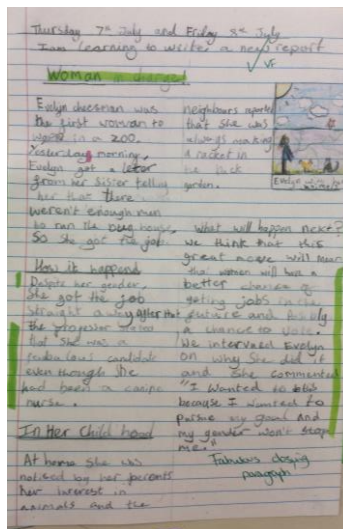 Thursday 7th July and Friday 8th July
I am learning to write a news report
VF
Woman in charge!
Evelyn cheesman was
the first woman to
work in a zoo.
Yesterday morning,
Evelyn got a leter
from her sister telling
her that there
weren't enough men
to run the bug house,
So she got the job.
How it happend
Despite her gender,
She got the job
straight away after that
the professor stated
that she was a
fabulous candidate
even through she
had been a canine
nurse.
In Her Child hood
At home she was
noticed by her parents
her interest in
animals and the
neighbours reported
that she was
always making
a racket in
the back
garden.
Evelyn with
animals
What will happen next?
we think that this
great move will mean
that women will have a
better chance of
geting jobs in the
future and
a chance to vote.
We intervaed Evelyn
on why she did it
and she commented
"I wanted to
because I wanted to
pursue my goal And
my gender won't stop
me."
Fabulous closing
paragraph